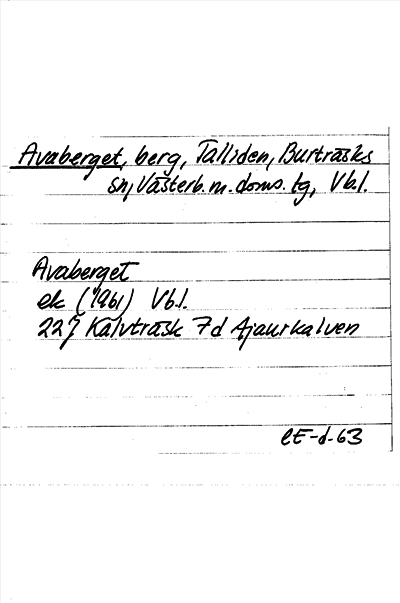 Avaberget, berg, Talliden, Burträsks
sn, Västerb. m. doms. tg, Vb.l.
Avaberget
ek (1961) Vb.l.
22J Kalvträsk 7d Ajaurkalven
CE-d-63